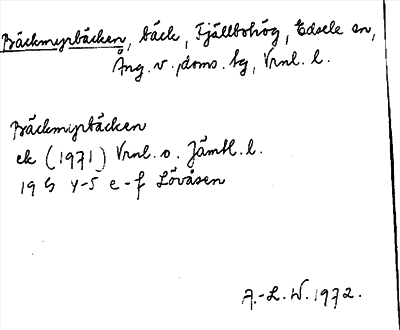 Bäckmyrbäcken, bäck, Fjällbohög, Edsele sn,
Ång. v. doms. tg, Vrnl. l.
Bäckmyrbäcken
ek (1971) Vrnl. o. Jämtl. l.
19 G 4-5 e-f Lövåsen
A.-L. W. 1972.